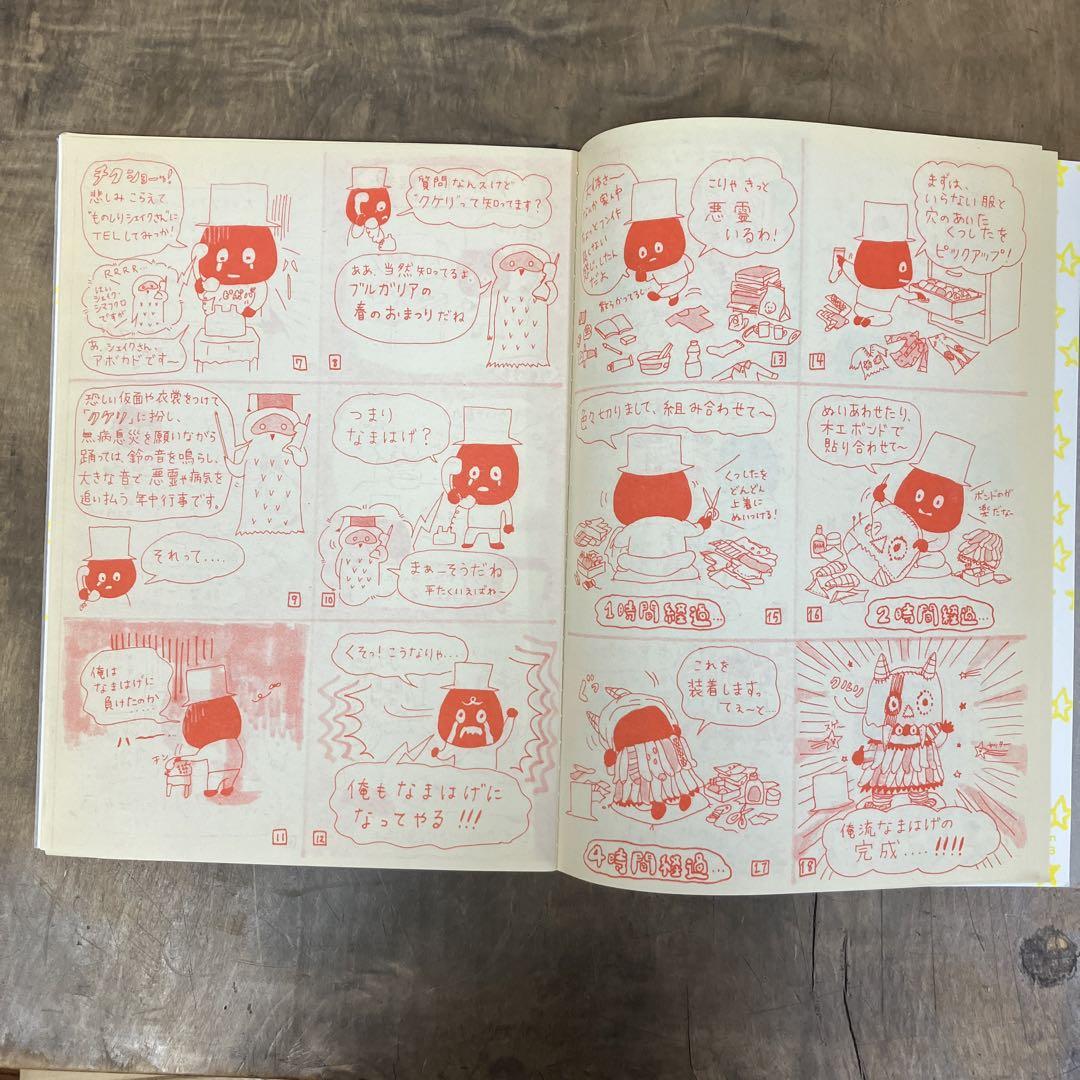 チクショーッ!
悲しみこらえて
"ものしりシェイクさん"に
TELしてみっか!
RRRR...
はい、
シェイク・
シマフクロウ
ですが
あ、シェイクさん、
アボカドです〜
7
質問なんスけど
"クケリ"って知ってます?
ああ、当然知ってるよ
ブルガリアの
春のおまつりだね
8
恐しい仮面や衣裳をつけて
「クケリ」に扮し、
無病息災を願いながら
踊っては、鈴の音を鳴らし、
大きな音で悪霊や病気を
追い払う年中行事です。
それって....
9
つまり
なまはげ?
まぁーそうだね
平たくいえばね〜
10
俺は
なまはげに
負けたのか
チン
11
くそっ!こうなりゃ...
俺もなまはげに
なってやる!!!
12
こりゃきっと
悪霊
いるわ!
散らかってるし
13
まずは、
いらない服と
穴のあいた
くつしたを
ピックアップ!
14
色々切りまして、組み合わせて〜
くつしたを
どんどん
上着に
ぬいつける!
1時間経過...
15
ぬいあわせたり、
木工ボンドで
貼り合わせて〜
ボンドのが
楽だな〜
16
2時間経過...
これを
装着しますっ
てぇ〜と...
4時間経過...
17
クルリ
俺流なまはげの
完成....!!!!
18